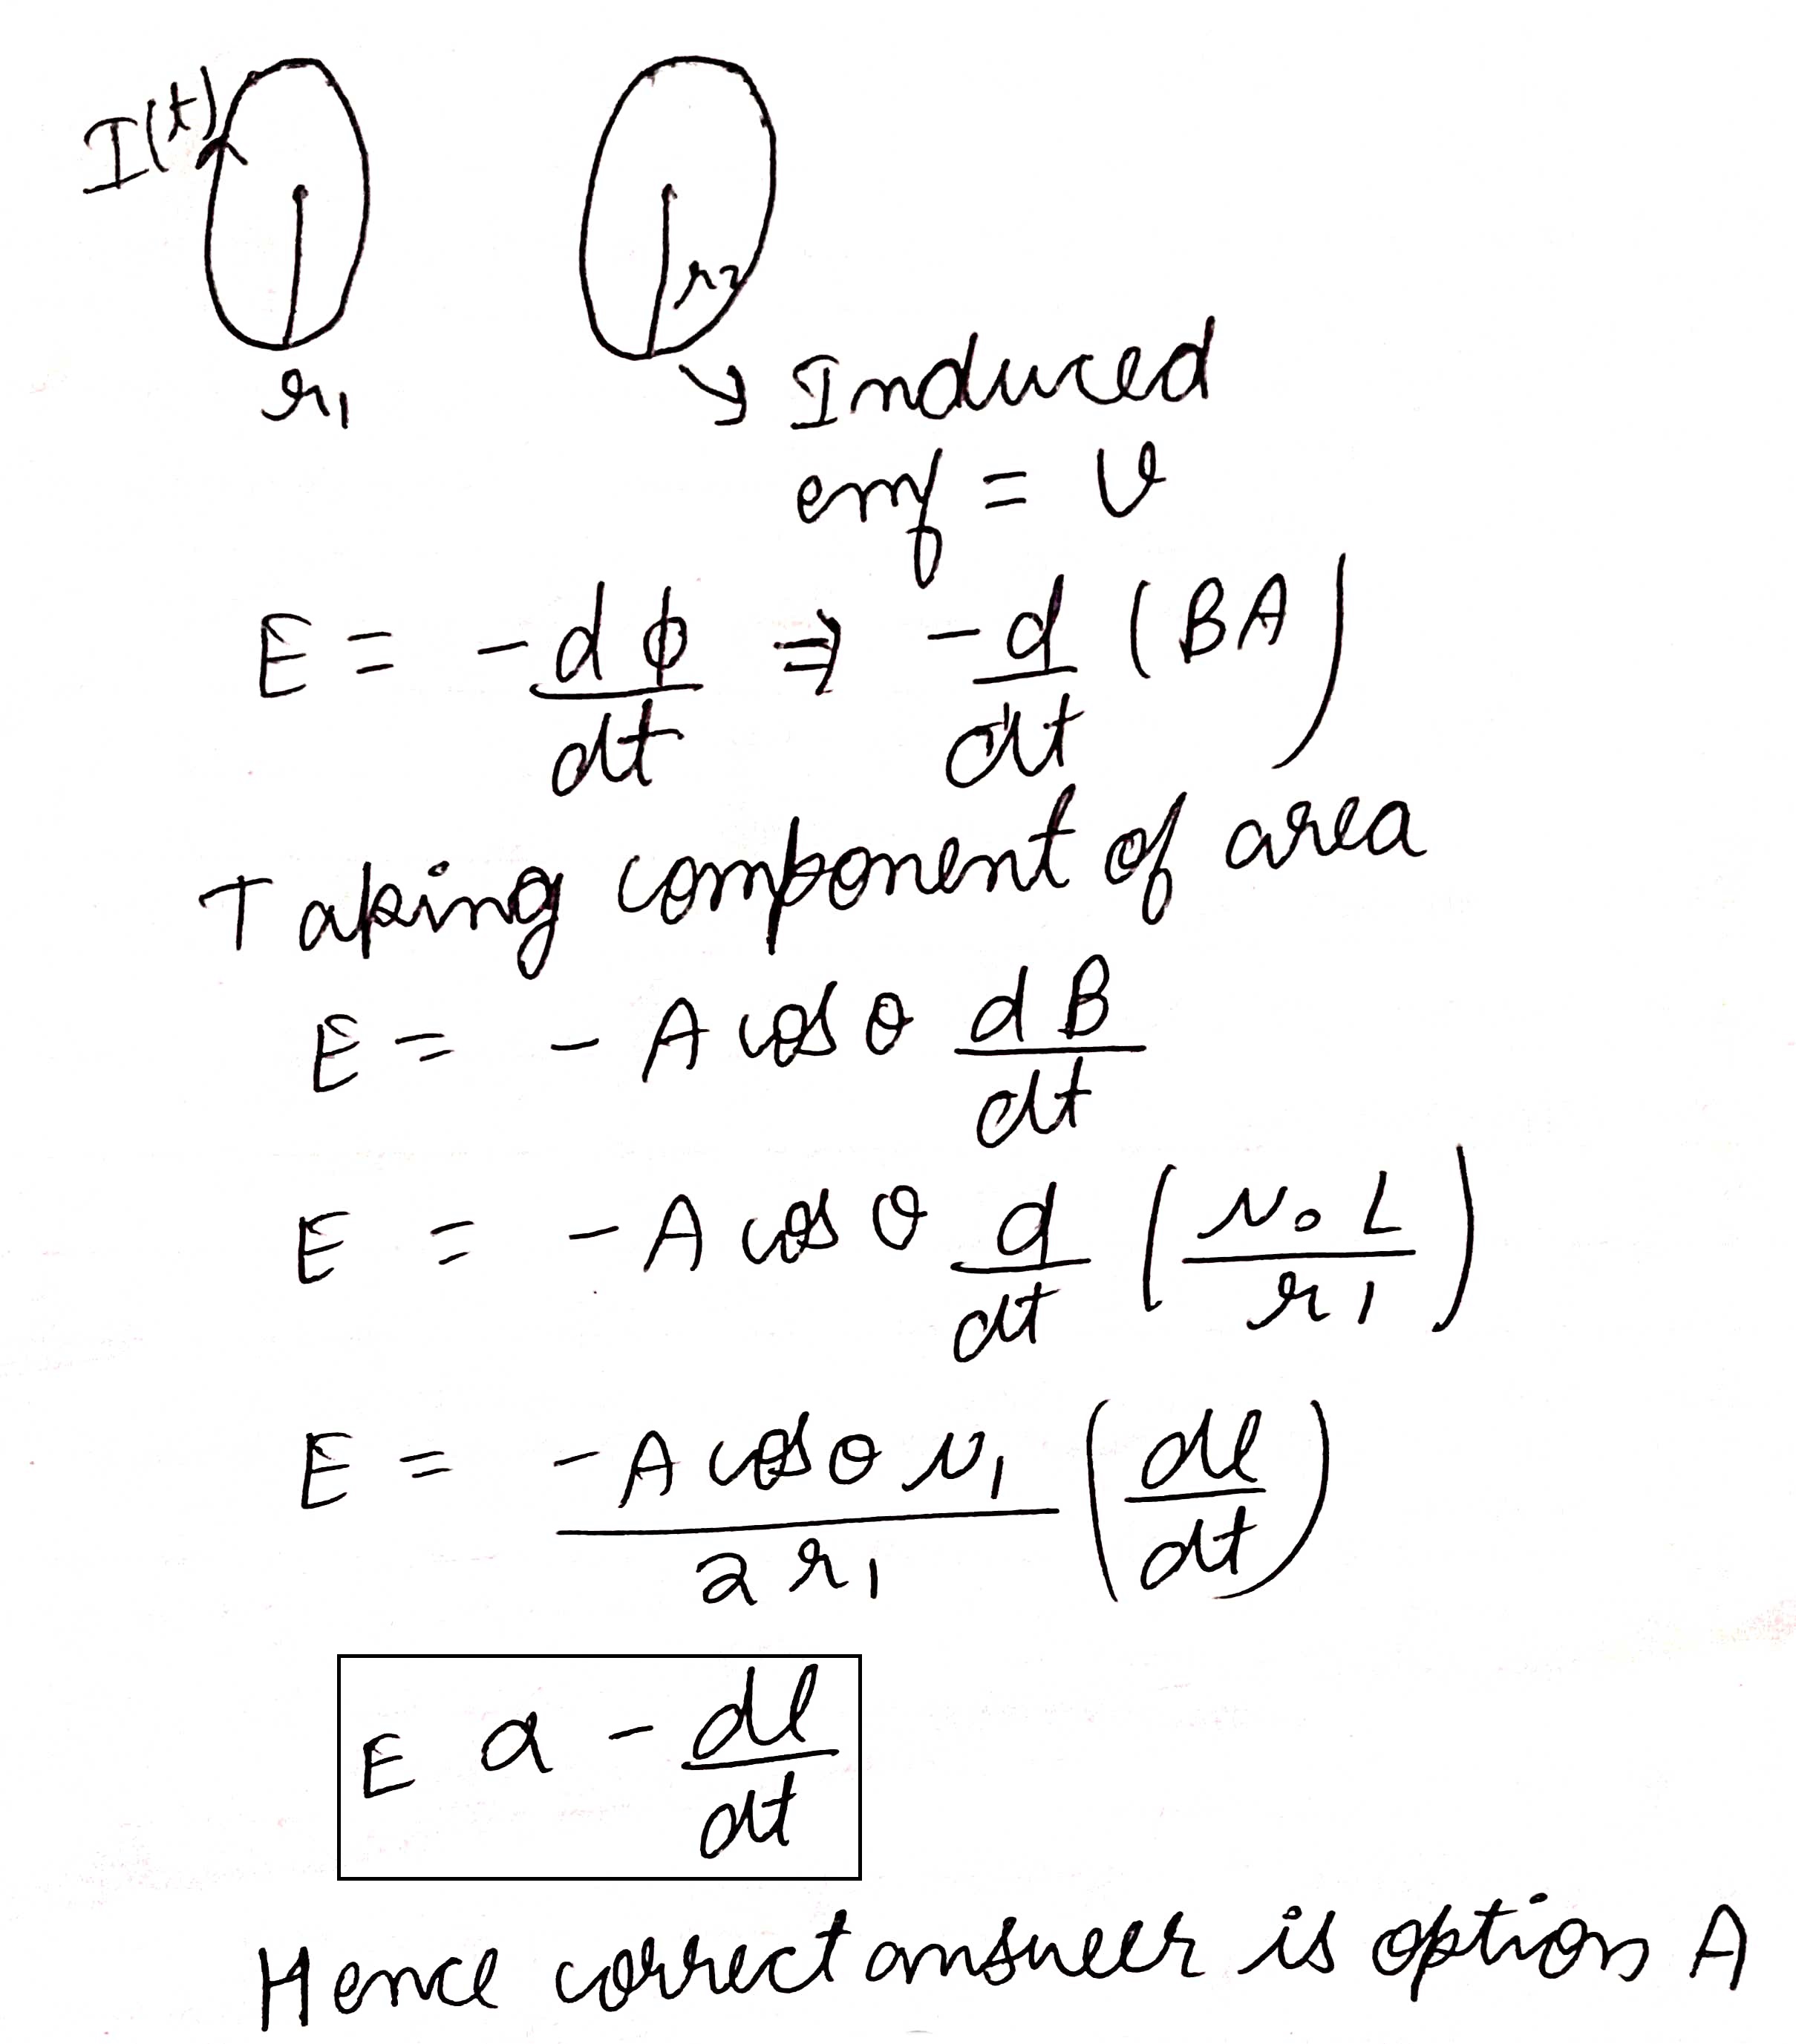 I(t)
r₁
r₂
Induced
emf = V
E = -dϕ/dt ⇒ -d/dt (BA)
Taking component of area
E = - A cos θ dB/dt
E = - A cos θ d/dt (μ₀ I/r₁)
E = -A cos θ μ₁/2 r₁ (dI/dt)
E α - dI/dt
Hence correct answer is option A